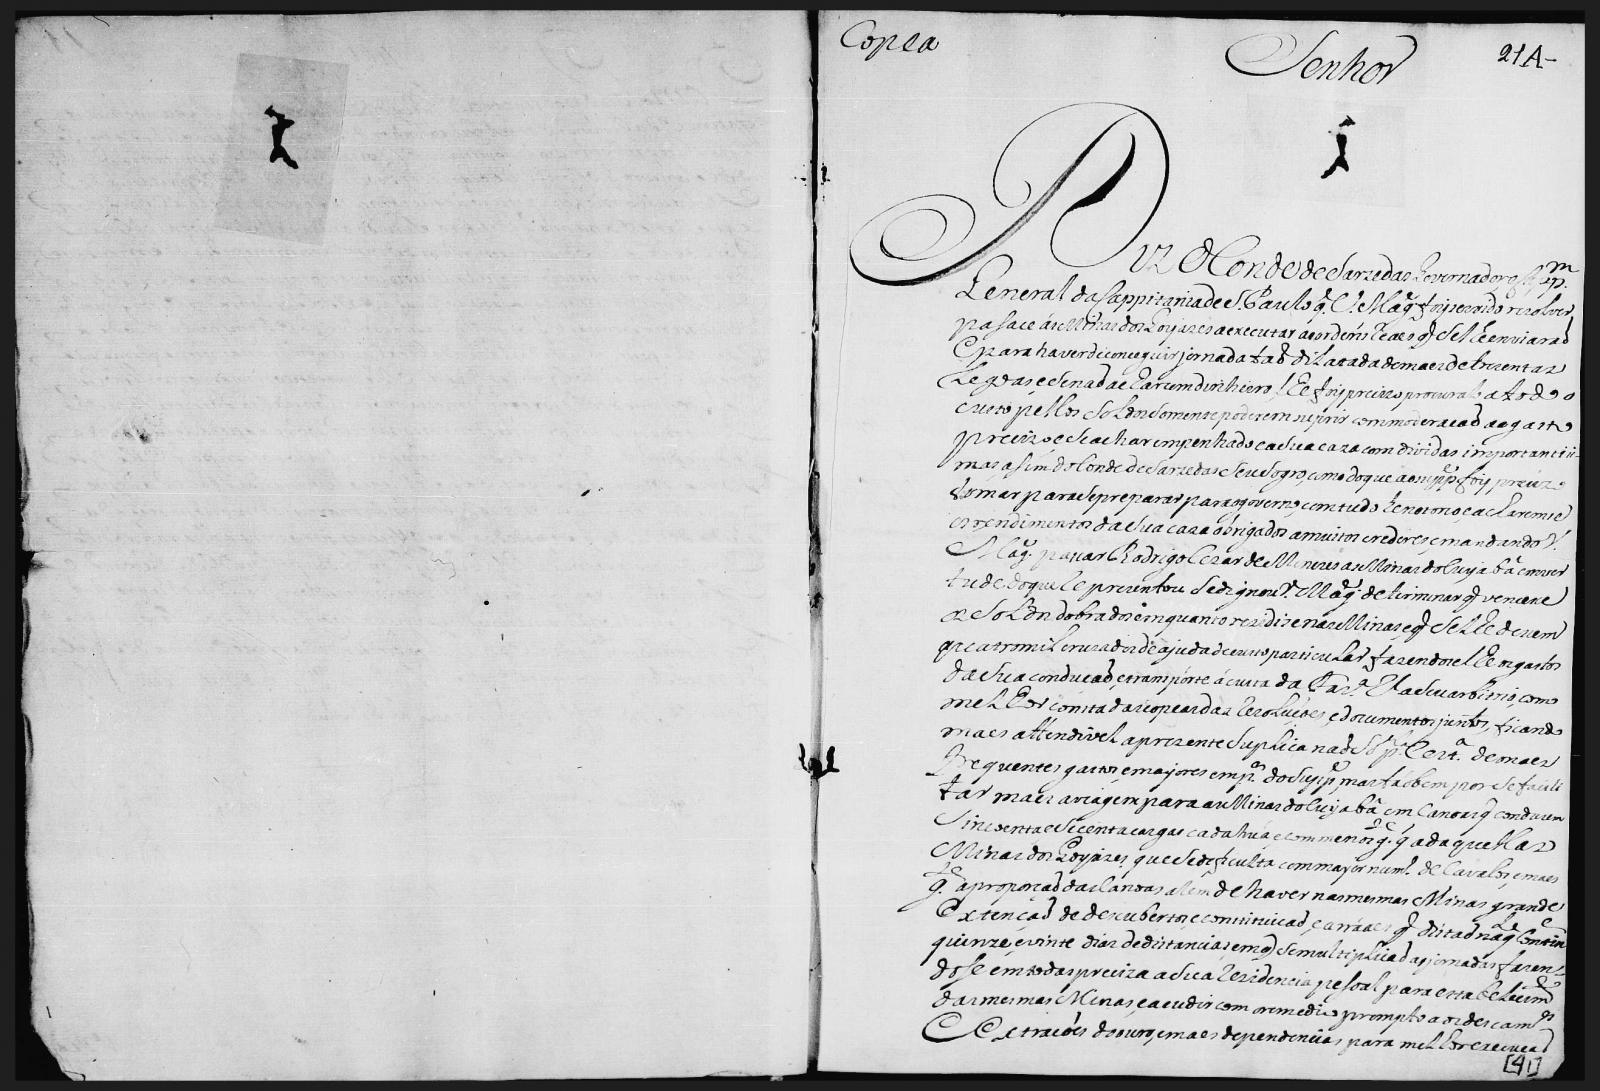 Copea
Senhor
21A-
Diz o Conde de Sarzedas Governador e Cap.m
General da Cappitania de S. Paulo q̃ V. Mag.e foy servido rezolver
pasace ás Minas dos Goyazes a executar as ordens Reaes q̃ Se lhe enviaraõ
E para haver de conceguir jornada taõ dilatada de maes de trezentas
Legoas, e Senaõ achar com dinhiero, lhe foy precizo procuralo a todo o
custo pellos Soldos Somente poderem suprir com moderacaõ ao gasto
precizo, e Se achar empenhado, e a Sua caza com dividas importantiĩ-
mas, asim do Conde de Sarzedas Seu Sogro, como do que ao mesmo foy precizo
tomar para Se preparar para o governo, com tudo he notorio, e acharemse
os rendimentos da Sua caza obrigados a muitos crederes, e mandando V.
Mag.e pasar Rodrigo Cezar de Menezes as Minas do Cuyabá em ver
tude do que reprezentou Se dignou V. Mag.e determinar q̃ vencese
os Soldos dobrados em quanto rezidise nas Minas, e q̃ Se lhe desem
quatro mil cruzados de ajuda de custo particular, fazendoselhe os gastos
da Sua conducaõ, e transporte á custa da Faz.a R. a Seu arbitrio, como
melhor consta das copeas das Rezoluçoes, e documentos juntos, ficando
maes attendivel a prezente Suplica naõ Só p.la Cert.a de maes
frequentes gastos, e mayores emp.os do Supp.e mas taõbem por Se facili
tar maes a viagem para as Minas do Cuyabá em Canoas q̃ conduzem
Sincoenta e Secenta cargas cada húa, e com menos q̃ q̃ a daquellas
Minas dos Goyázes, que Se deficulta com mayor num.o de Cavalos, e maes
g.te a proporçaõ das Canoas, alem de haver nas mesmas Minas grande
Extençaõ de descubertos, e constituicaõ, e arráaes q̃ distaõ
quinze, e vinte dias de distancias, em q̃ Se multiplicaõ as jornadas fazen-
dose em todas preciza a Sua Rezidencia pesoal para estabelecim.to
das mesmas Minas, e acudir com o remedio prompto aos descam.os
Extracões do ouro, e maes dependencias para melhor execucaõ
[41]